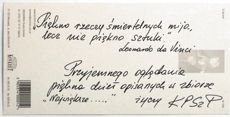 "Piękno rzeczy śmiertelnych mija,
lecz nie piękno sztuki."
Leonardo da Vinci
Przyjemnego oglądania
piękna dzieł opisanych w zbiorze
"Największe....." życzy KPSzP